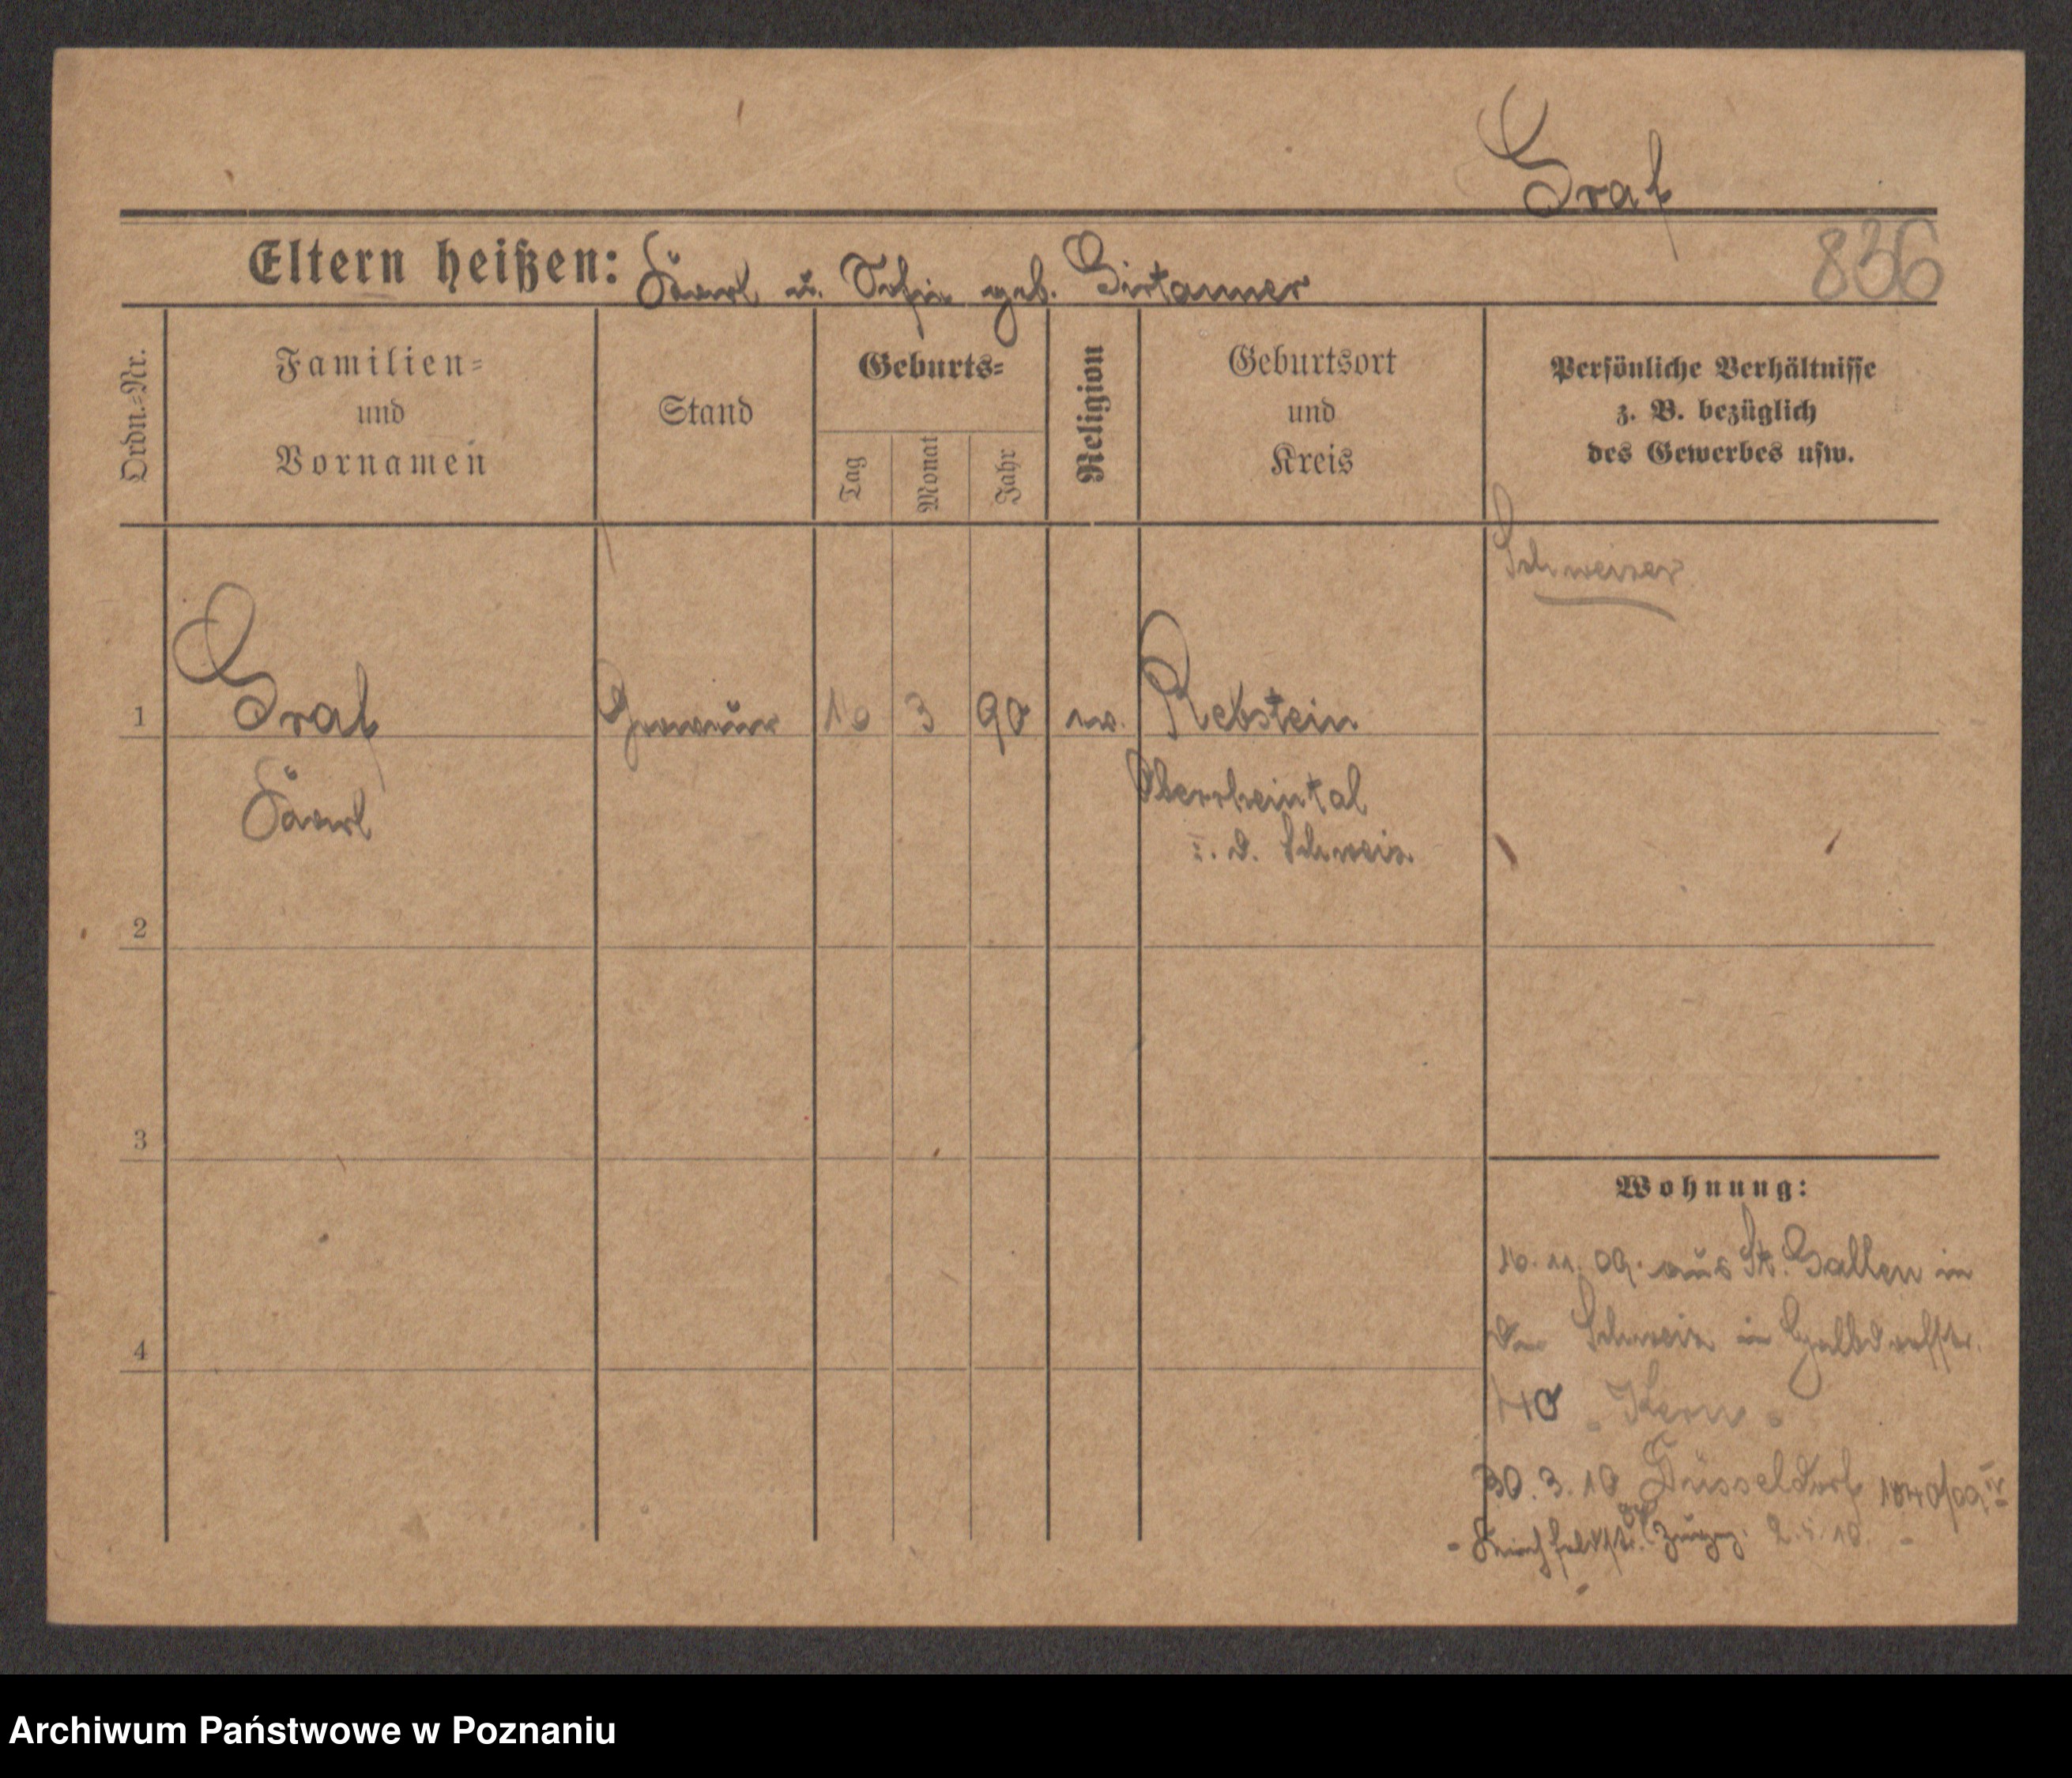 Graf
Eltern heißen: Karl u. Sofie geb. Girtanner
836
Ordn.=Nr.
Familien=
und
Vornamen
Stand
Geburts=
Tag
Monat
Jahr
Religion
Geburtsort
und
Kreis
Persönliche Verhältnisse
z. B. bezüglich
des Gewerbes usw.
Schweizer
1
Graf
Graveur
16 3 90
Rebstein
Karl
Oberrheintal
i. d. Schweiz
2
3
4
Wohnung:
16. 11. 09. aus St. Gallen in
der Schweiz in
40 Kern
30. 3. 10 Düsseldorf
Kirchfeldstr. Zuzug
Archiwum Państwowe w Poznaniu